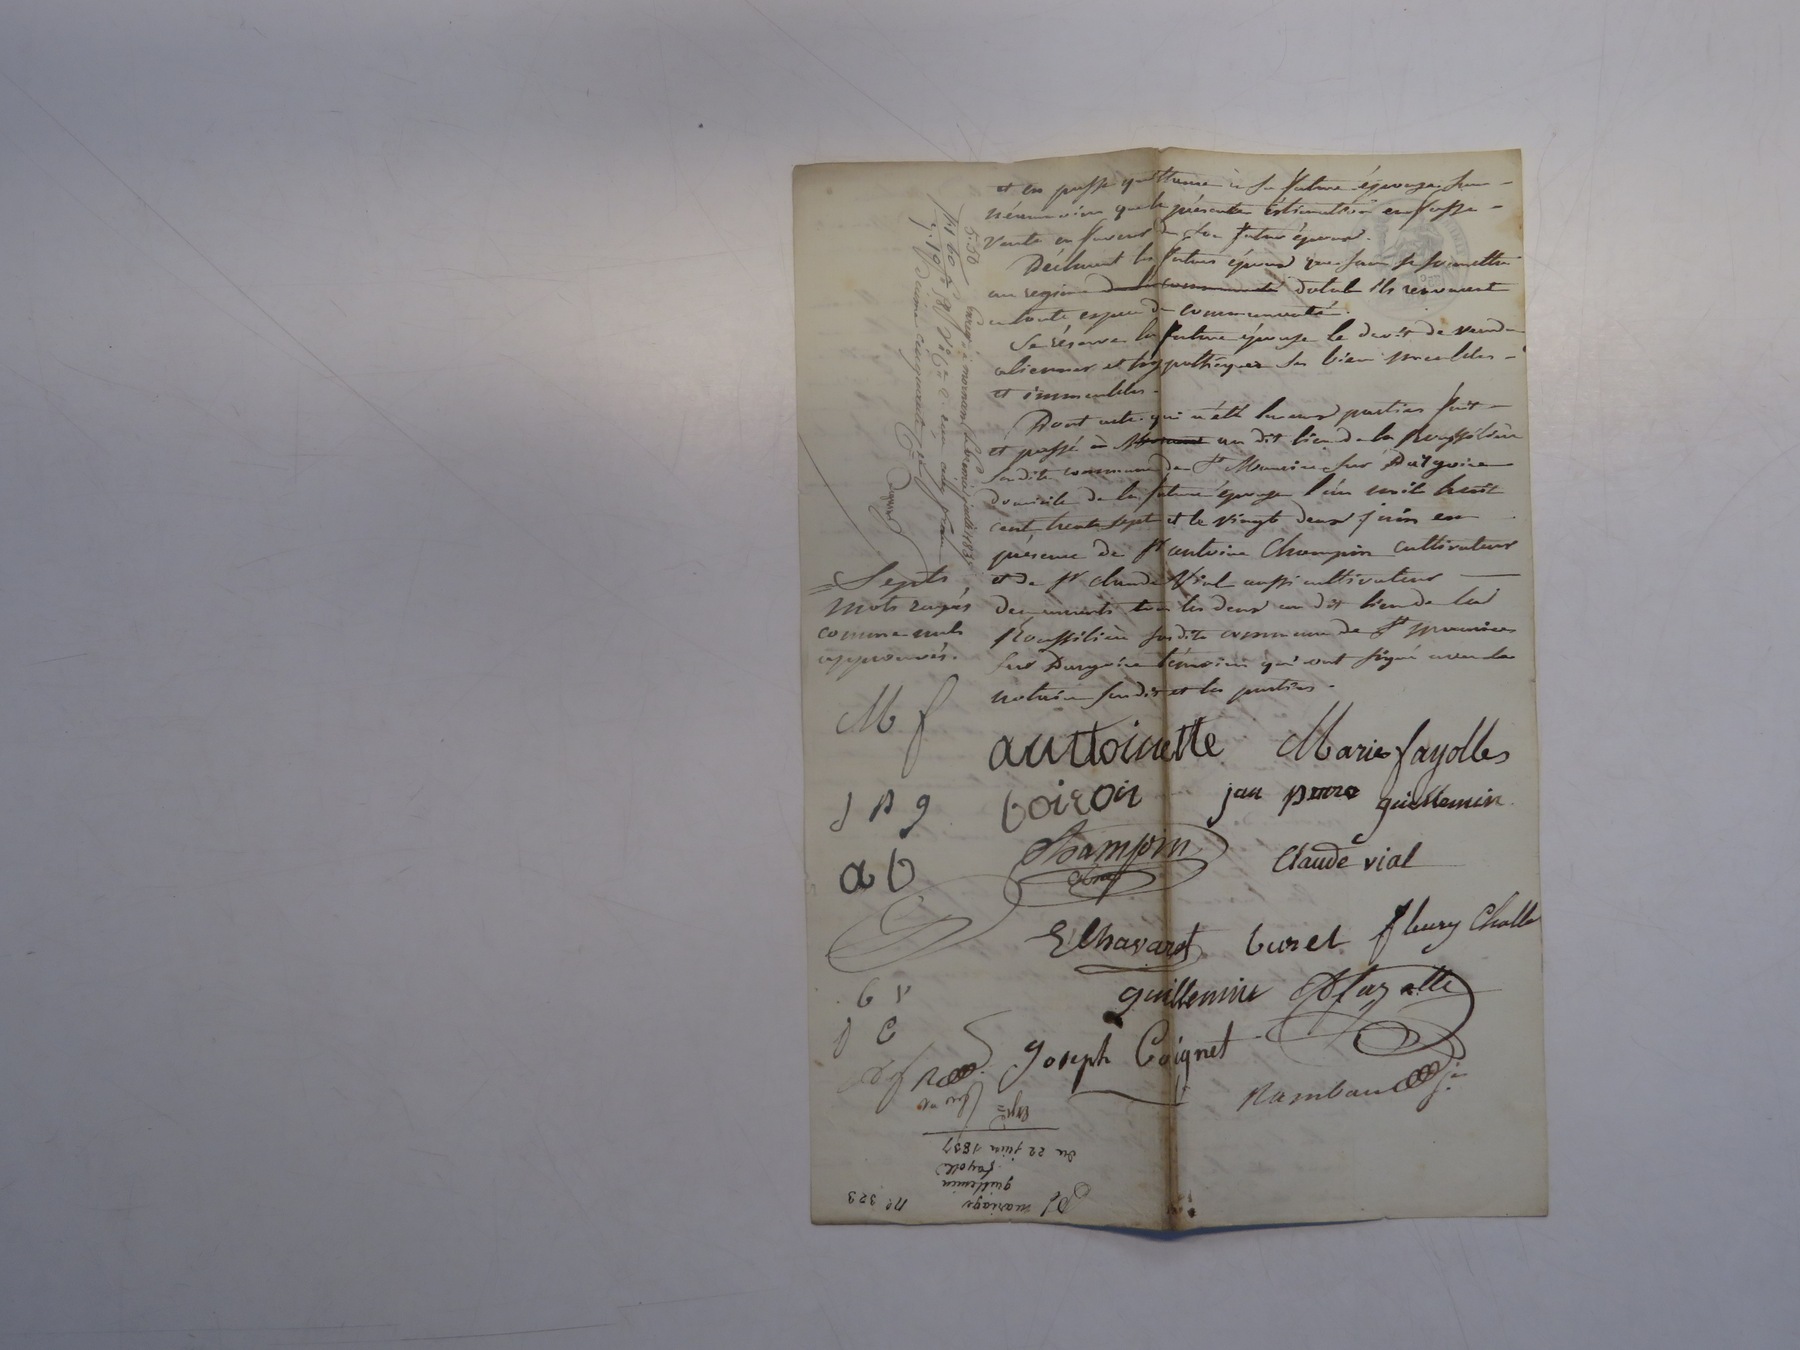 et en passe quittance à sa future épouse sans
néanmoins que la présente estimation en fasse
vente en faveur du futur époux.
Déclarent les futurs époux que sans se soumettre
au régime de la communauté dotal ils renoncent
a toute espece de communauté.
Se réserve la future épouse le droit de vendre
aliénner et hypothéquer ses bien meubles
et immeubles.
Dont acte qui a été lu aux parties fait
et passé à Mornant au dit lieu de la Roussilière
susdite commune de St Maurice sur Dargoire
domicile de la future épouse l'an mil huit
cent trente sept et le vingt deux juin en
présence de Sr antoine Champin cultivateur
et de Sr claude Vial aussi cultivateur
demeurants tous les deux au dit lieu de la
Roussilière susdite commune de St Maurice
sur Dargoire témoins qui ont signé avec le
notaire susdit et les parties.
Septs
mots rayés
comme nuls
approuvés.
M f
J P g
a b
antoinette Marie fayolles
boiron jan pierre guillemin
Champin
Claude vial
E Chavaret buret fleury Challe
guillemin fayolle
Joseph Coignet
Rambaud jn
b v
J C
N° 323
Ct mariage
guillemin
fayolle
du 22 juin 1837